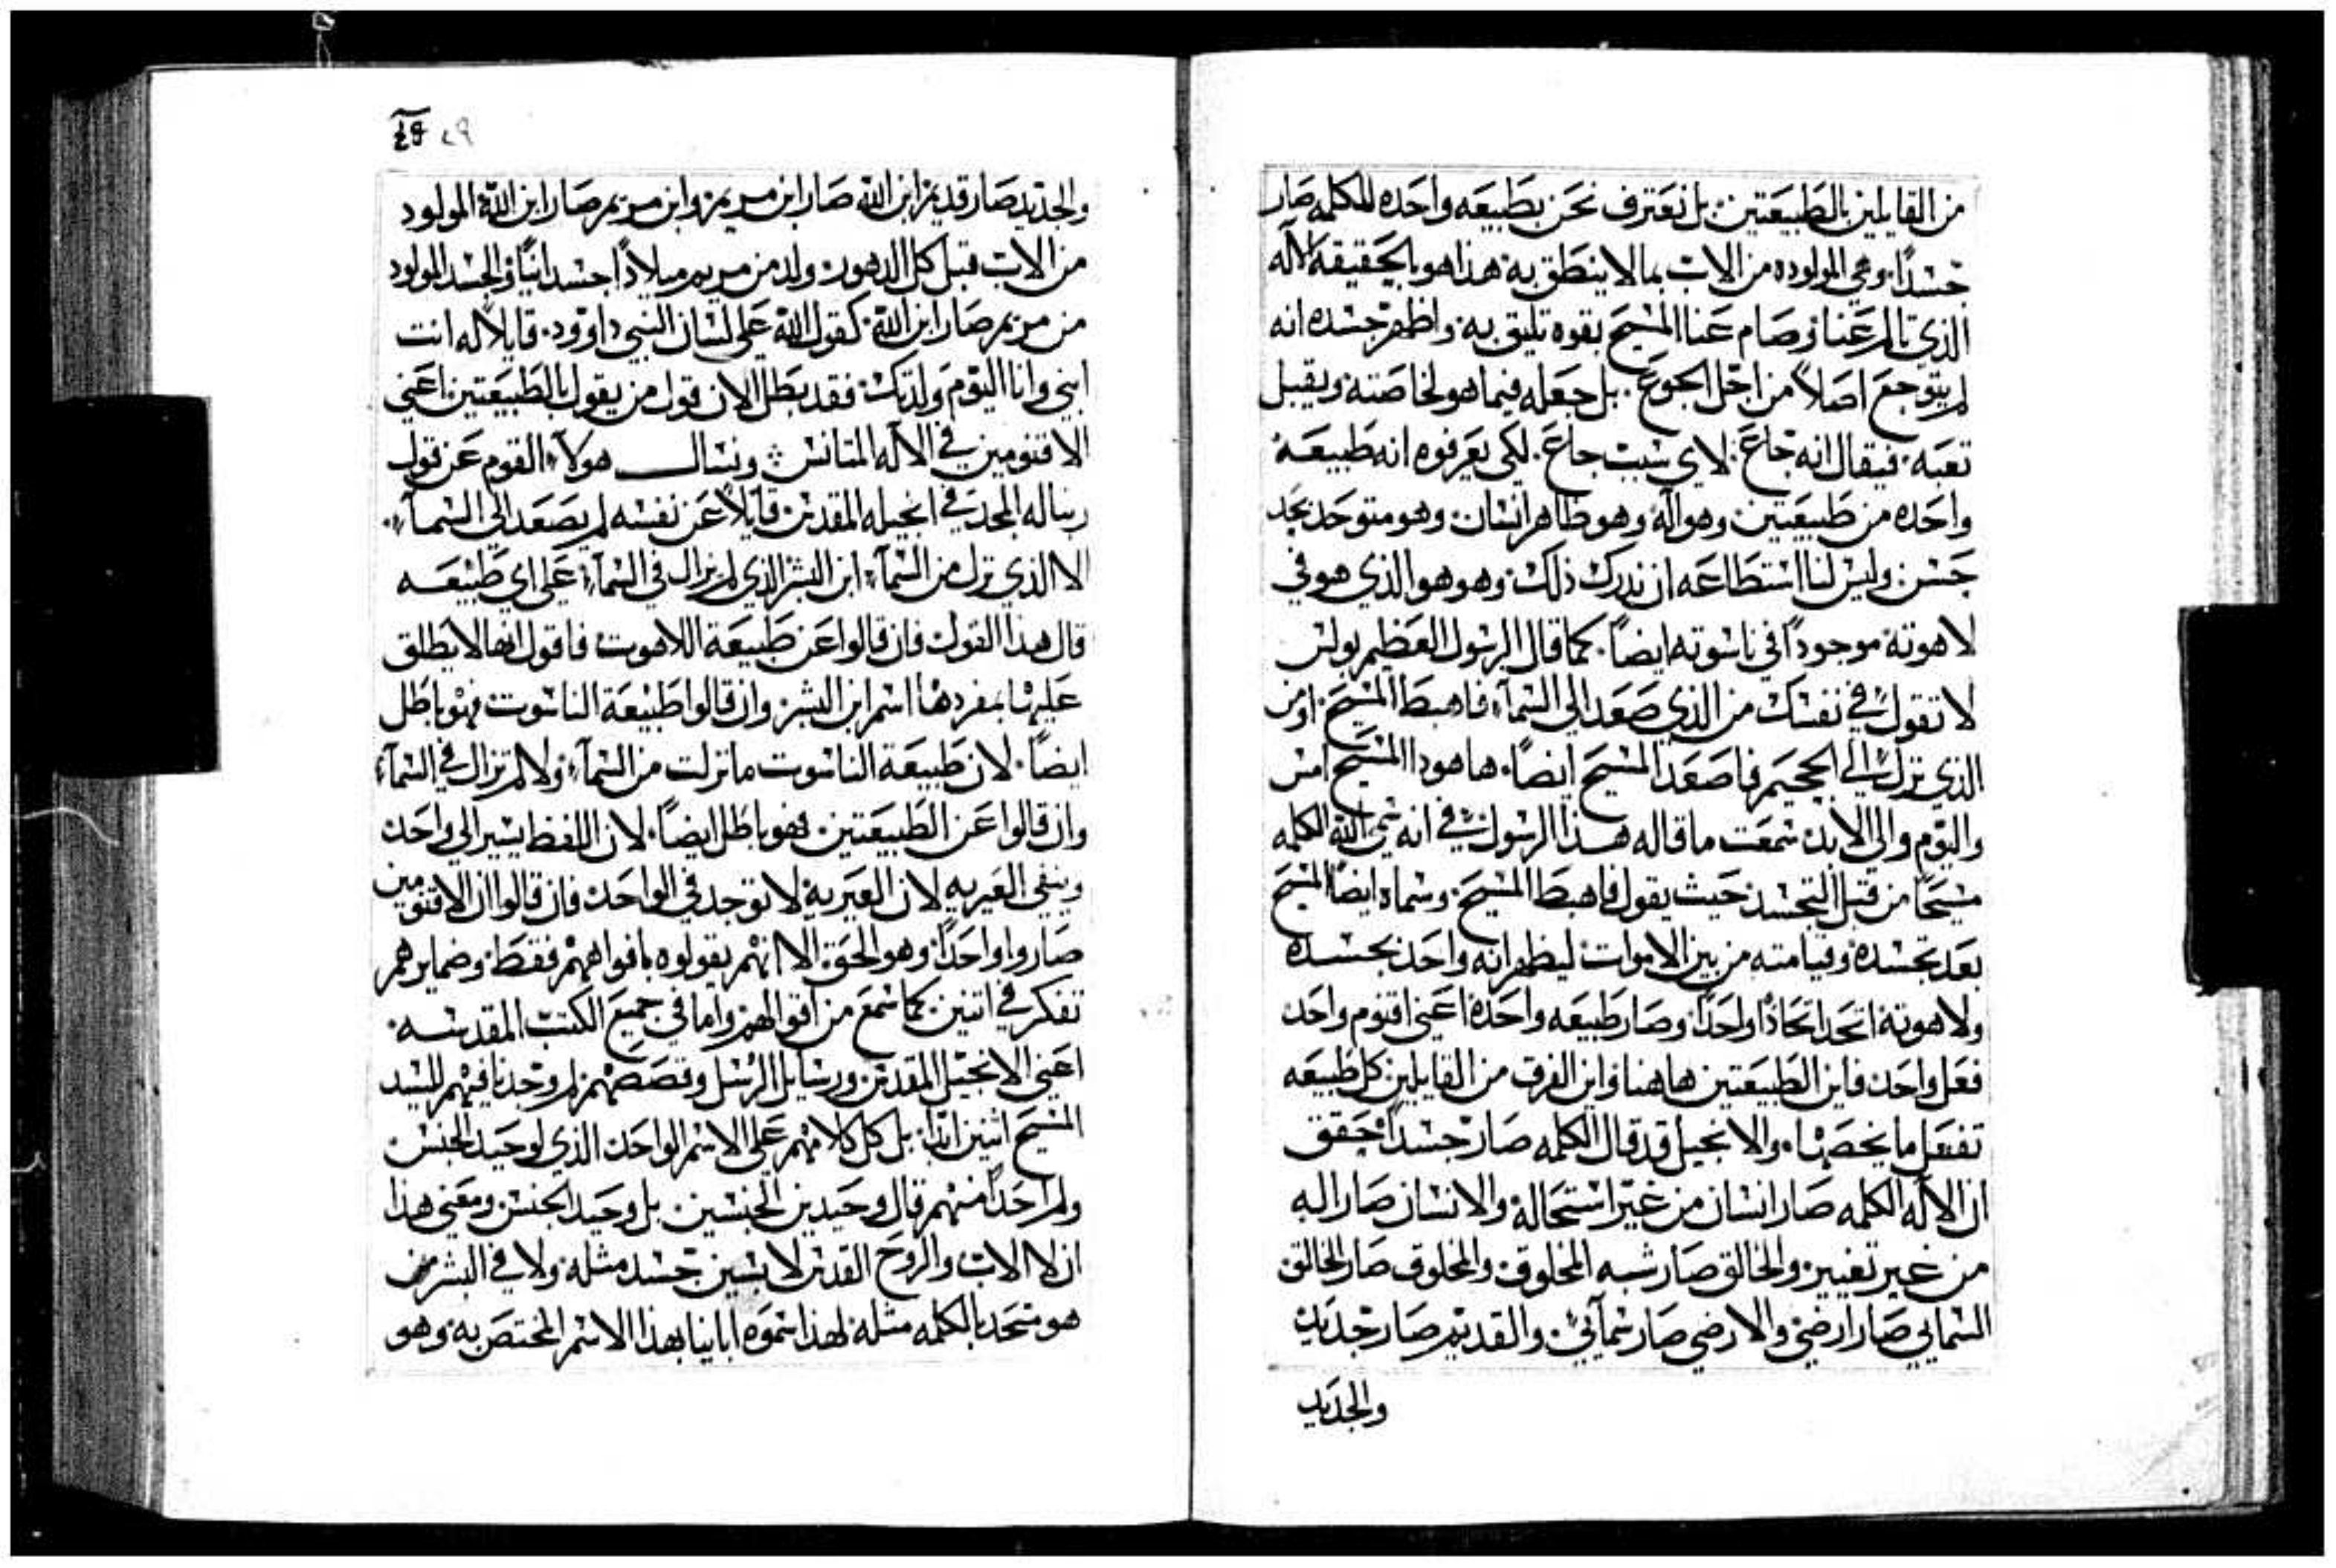 من القايلين بالطبيعتين بل نعترف نحن بطبيعه واحده للكلمه صار
جسدًا وهي المولوده من الاب بما لا ينطق به هذا هو بالحقيقه الاله
الذي تالم عنا وصام عنا المسيح بقوه تليق به واظهر جسده انه
لم يتوجع اصلاً من اجل الجوع بل جعله فيما هو لخاصته ويقبل
تعبه فيقال انه جاع لاي سبب جاع لكي يعرفوه انه طبيعه
واحده من طبيعتين وهو اله وهو ظاهر انسان وهو متوحد بجد
حسن وليس لنا استطاعه ان ندرك ذلك وهو هو الذي هو في
لاهوته موجودًا في ناسوته ايضًا كما قال الرسول العظيم بولس
لا تقول في نفسك من الذي صعد الى السمآء فاهبط المسيح او من
الذي نزل الي الجحيم فاصعد المسيح ايضًا ها هوذا المسيح امس
واليوم والي الابد سمعت ما قاله هذا الرسول في انه سمى الله الكلمه
مسيحًا من قبل التجسد حيث يقول فاهبط المسيح وسماه ايضًا المسيح
بعد تجسده وقيامته من بين الاموات ليظهر انه واحد بجسده
ولاهوته اتحد اتحادًا واحدًا وصار طبيعه واحدة اعني اقنوم واحد
فعل واحد فاين الطبيعتين هاهنا واين الفرق من القايلين كل طبيعه
تفعل ما يخصها والانجيل قد قال الكلمه صار جسدًا حقق
ان الاله الكلمه صار انسان من غير استحالة والانسان صار اله
من غير تغيير والخالق صار شبه المخلوق والمخلوق صار الخالق
السمايي صار ارضي والارضي صار سمآيي والقديم صار جديد
والجديد
٤٩
والجديد صار قديم ابن الله صار ابن مريم وابن مريم صار ابن الله المولود
من الاب قبل كل الدهور ولد من مريم ميلادًا جسدانيًا والجسد المولود
من مريم صار ابن الله كقول الله على لسان النبي داوود قايلاً له انت
ابني وانا اليوم ولدتك فقد بطل الان قول من يقول بالطبيعتين اعني
الاقنومين في الاله المتانس ونسال هولآء القوم عن قول
ربنا له المجد في انجيله المقدس قايلاً عن نفسه لم يصعد الي السمآء
الا الذي نزل من السمآء ابن البشر الذي لم يزال في السمآء على اي طبيعه
قال هذا القول فان قالوا عن طبيعة اللاهوت فاقول انها لا يطلق
عليها بمفردها اسم ابن البشر وان قالوا طبيعة الناسوت فهو باطل
ايضًا لان طبيعة الناسوت ما نزلت من السمآء ولا لم تزال في السمآء
وان قالوا عن الطبيعتين فهو باطل ايضًا لان اللفظ يشير الي واحد
وينفي الغيريه لان الغيرية لا توجد في الواحد فان قالوا ان الاقنومين
صاروا واحدًا وهو الحق الا انهم يقولوه بافواههم فقط وضمايرهم
تفكر في اتنين كما سمع من اقوالهم واما في جميع الكتب المقدسه
اعني الانجيل المقدس ورسايل الرسل وقصصهم لم وجدنا فيهم للسيد
المسيح اثنين ابدًا بل كل كلامهم على الاسم الواحد الذي لوحيد الجنس
ولم احدًا منهم قال وحيدين الجنسين بل وحيد الجنس ومعني هذا
ان لا الاب والروح القدس لابسين جسد مثله ولا في البشر من
هو متحد بالكلمه مثله لهذا سموه ابابينا بهذا الاسم المختص به وهو